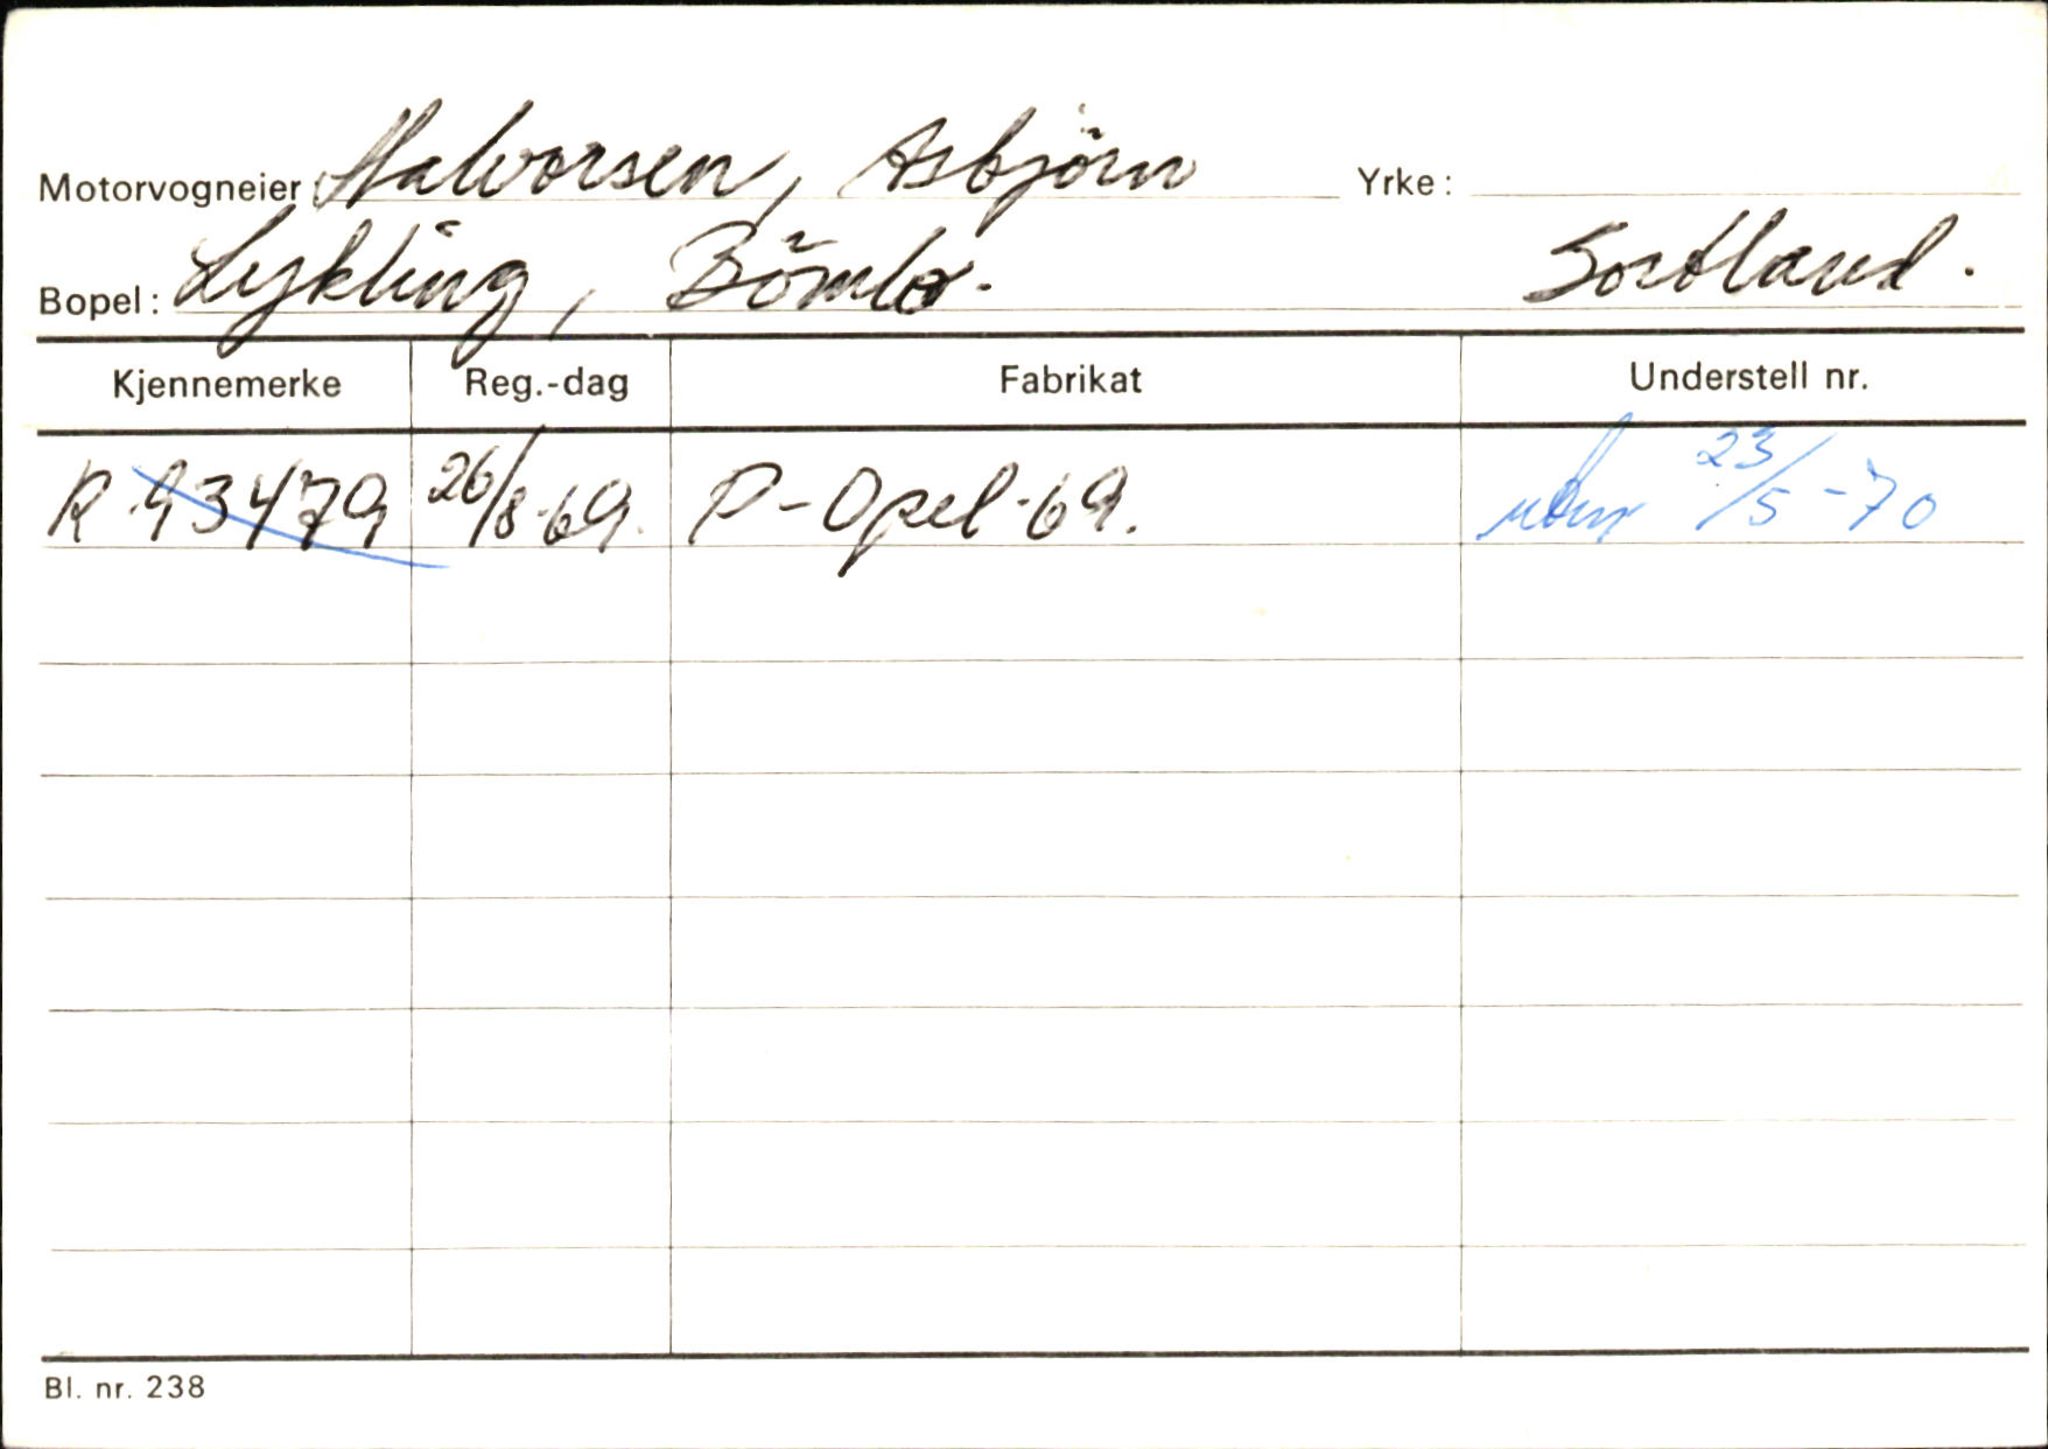 Motorvogneier: Halvorsen, Asbjörn Yrke:
Bopel: Lykling, Bömlo. Sortland.
Kjennemerke Reg.-dag Fabrikat Understell nr.
R 93479 26/8-69. P-Opel-69. 23/5-70
Bl. nr. 238